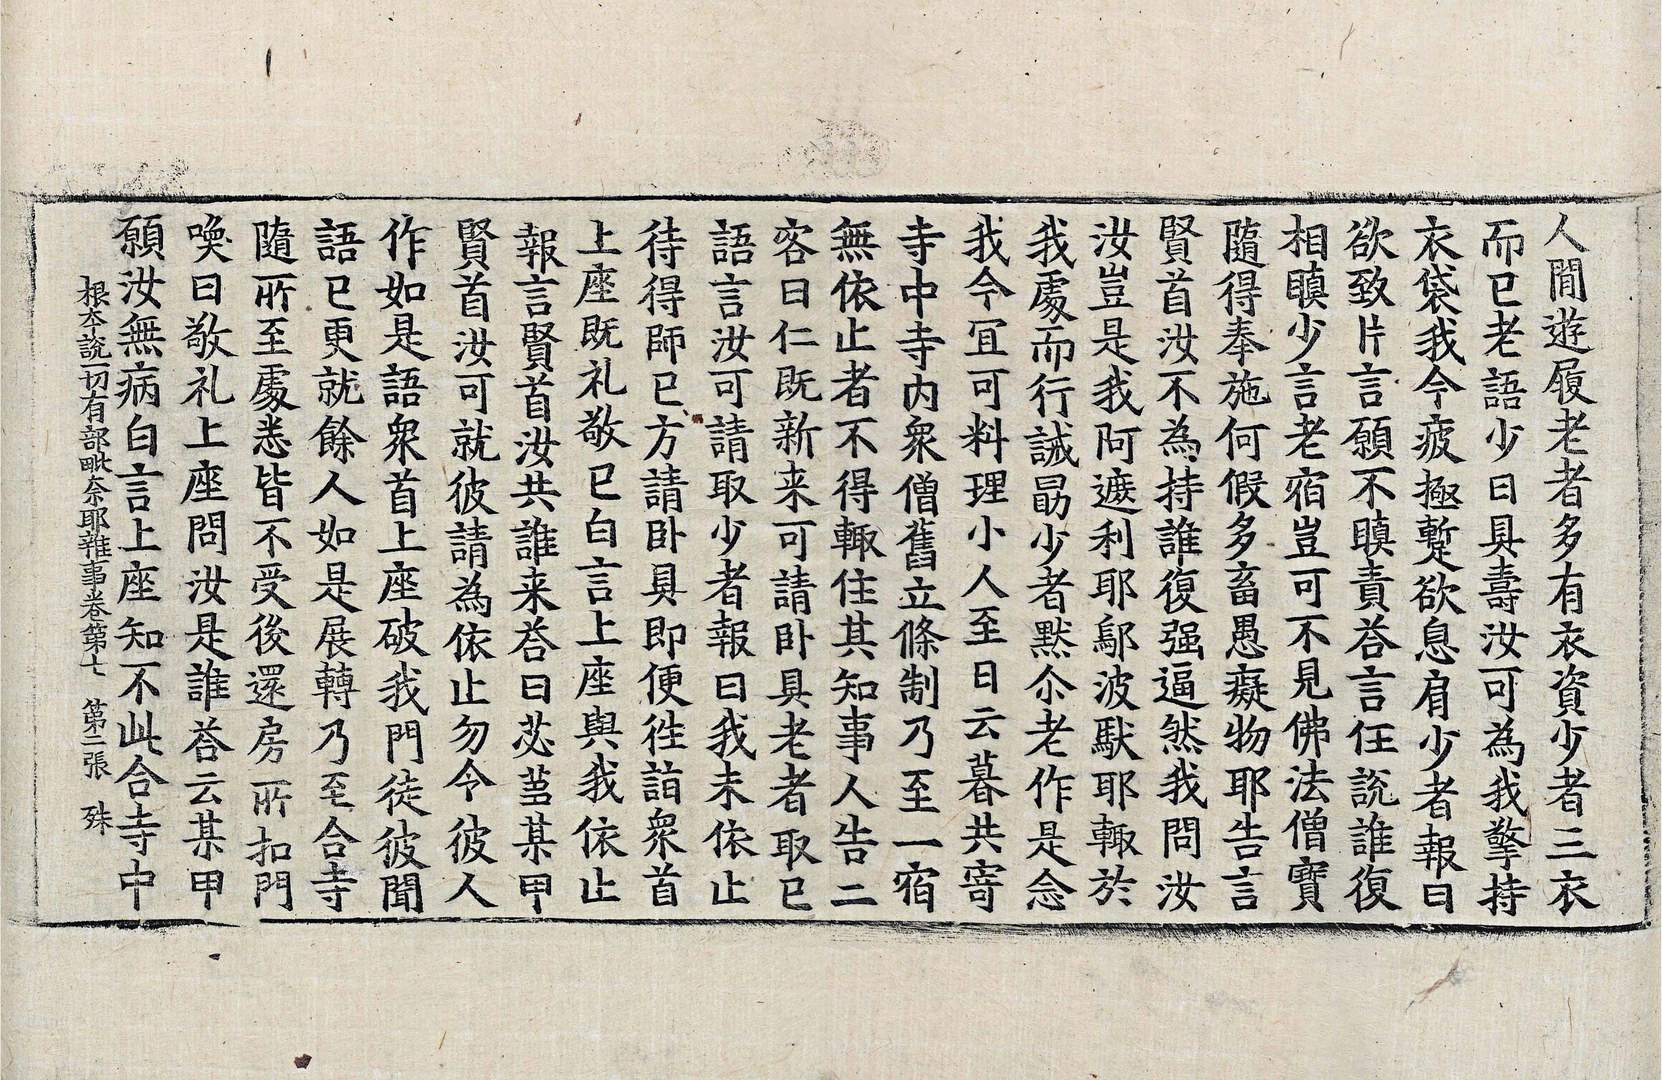 人間遊履老者多有衣資少者三衣
而已老語少曰具壽汝可為我擎持
衣袋我今疲極蹔欲息肩少者報曰
欲致片言願不瞋責荅言任說誰復
相瞋少言老宿豈可不見佛法僧寶
隨得奉施何假多畜愚癡物耶告言
賢首汝不為持誰復强逼然我問汝
汝豈是我阿遮利耶鄔波馱耶輙於
我處而行誡勗少者默尒老作是念
我今冝可料理小人至日云暮共寄
寺中寺內衆僧舊立條制乃至一宿
無依止者不得輙住其知事人告二
客曰仁既新来可請卧具老者取已
語言汝可請取少者報曰我未依止
待得師已方請卧具即便徃詣衆首
上座既礼敬已白言上座與我依止
報言賢首汝共誰来荅曰苾蒭某甲
賢首汝可就彼請為依止勿令彼人
作如是語衆首上座破我門徒彼聞
語已更就餘人如是展轉乃至合寺
隨所至處悉皆不受後還房所扣門
喚曰敬礼上座問汝是誰荅云某甲
願汝無病白言上座知不此合寺中
根夲說一切有部毗奈耶雜事卷第七 第二張 殊